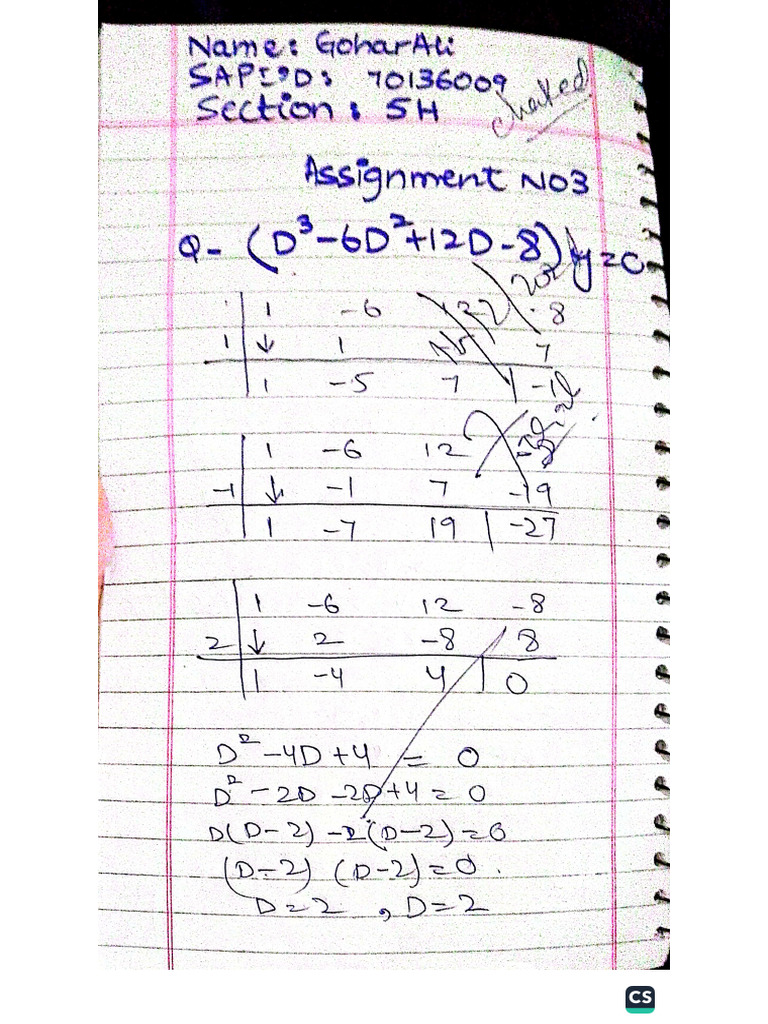 Name: Gohar Ali
SAP ID: 70136009
Section: 5H
chaked
Assignment NO3
Q- (D³-6D²+12D-8)y=0
1 -6 12 -8
1 ↓ 1 7
1 -5 7 | -1
1 -6 12
-1 ↓ -1 7 -19
1 -7 19 | -27
1 -6 12 -8
2 ↓ 2 -8 8
1 -4 4 | 0
D²-4D+4 = 0
D²-2D-2D+4=0
D(D-2)-2(D-2)=0
(D-2) (D-2)=0.
D=2 , D=2
CS